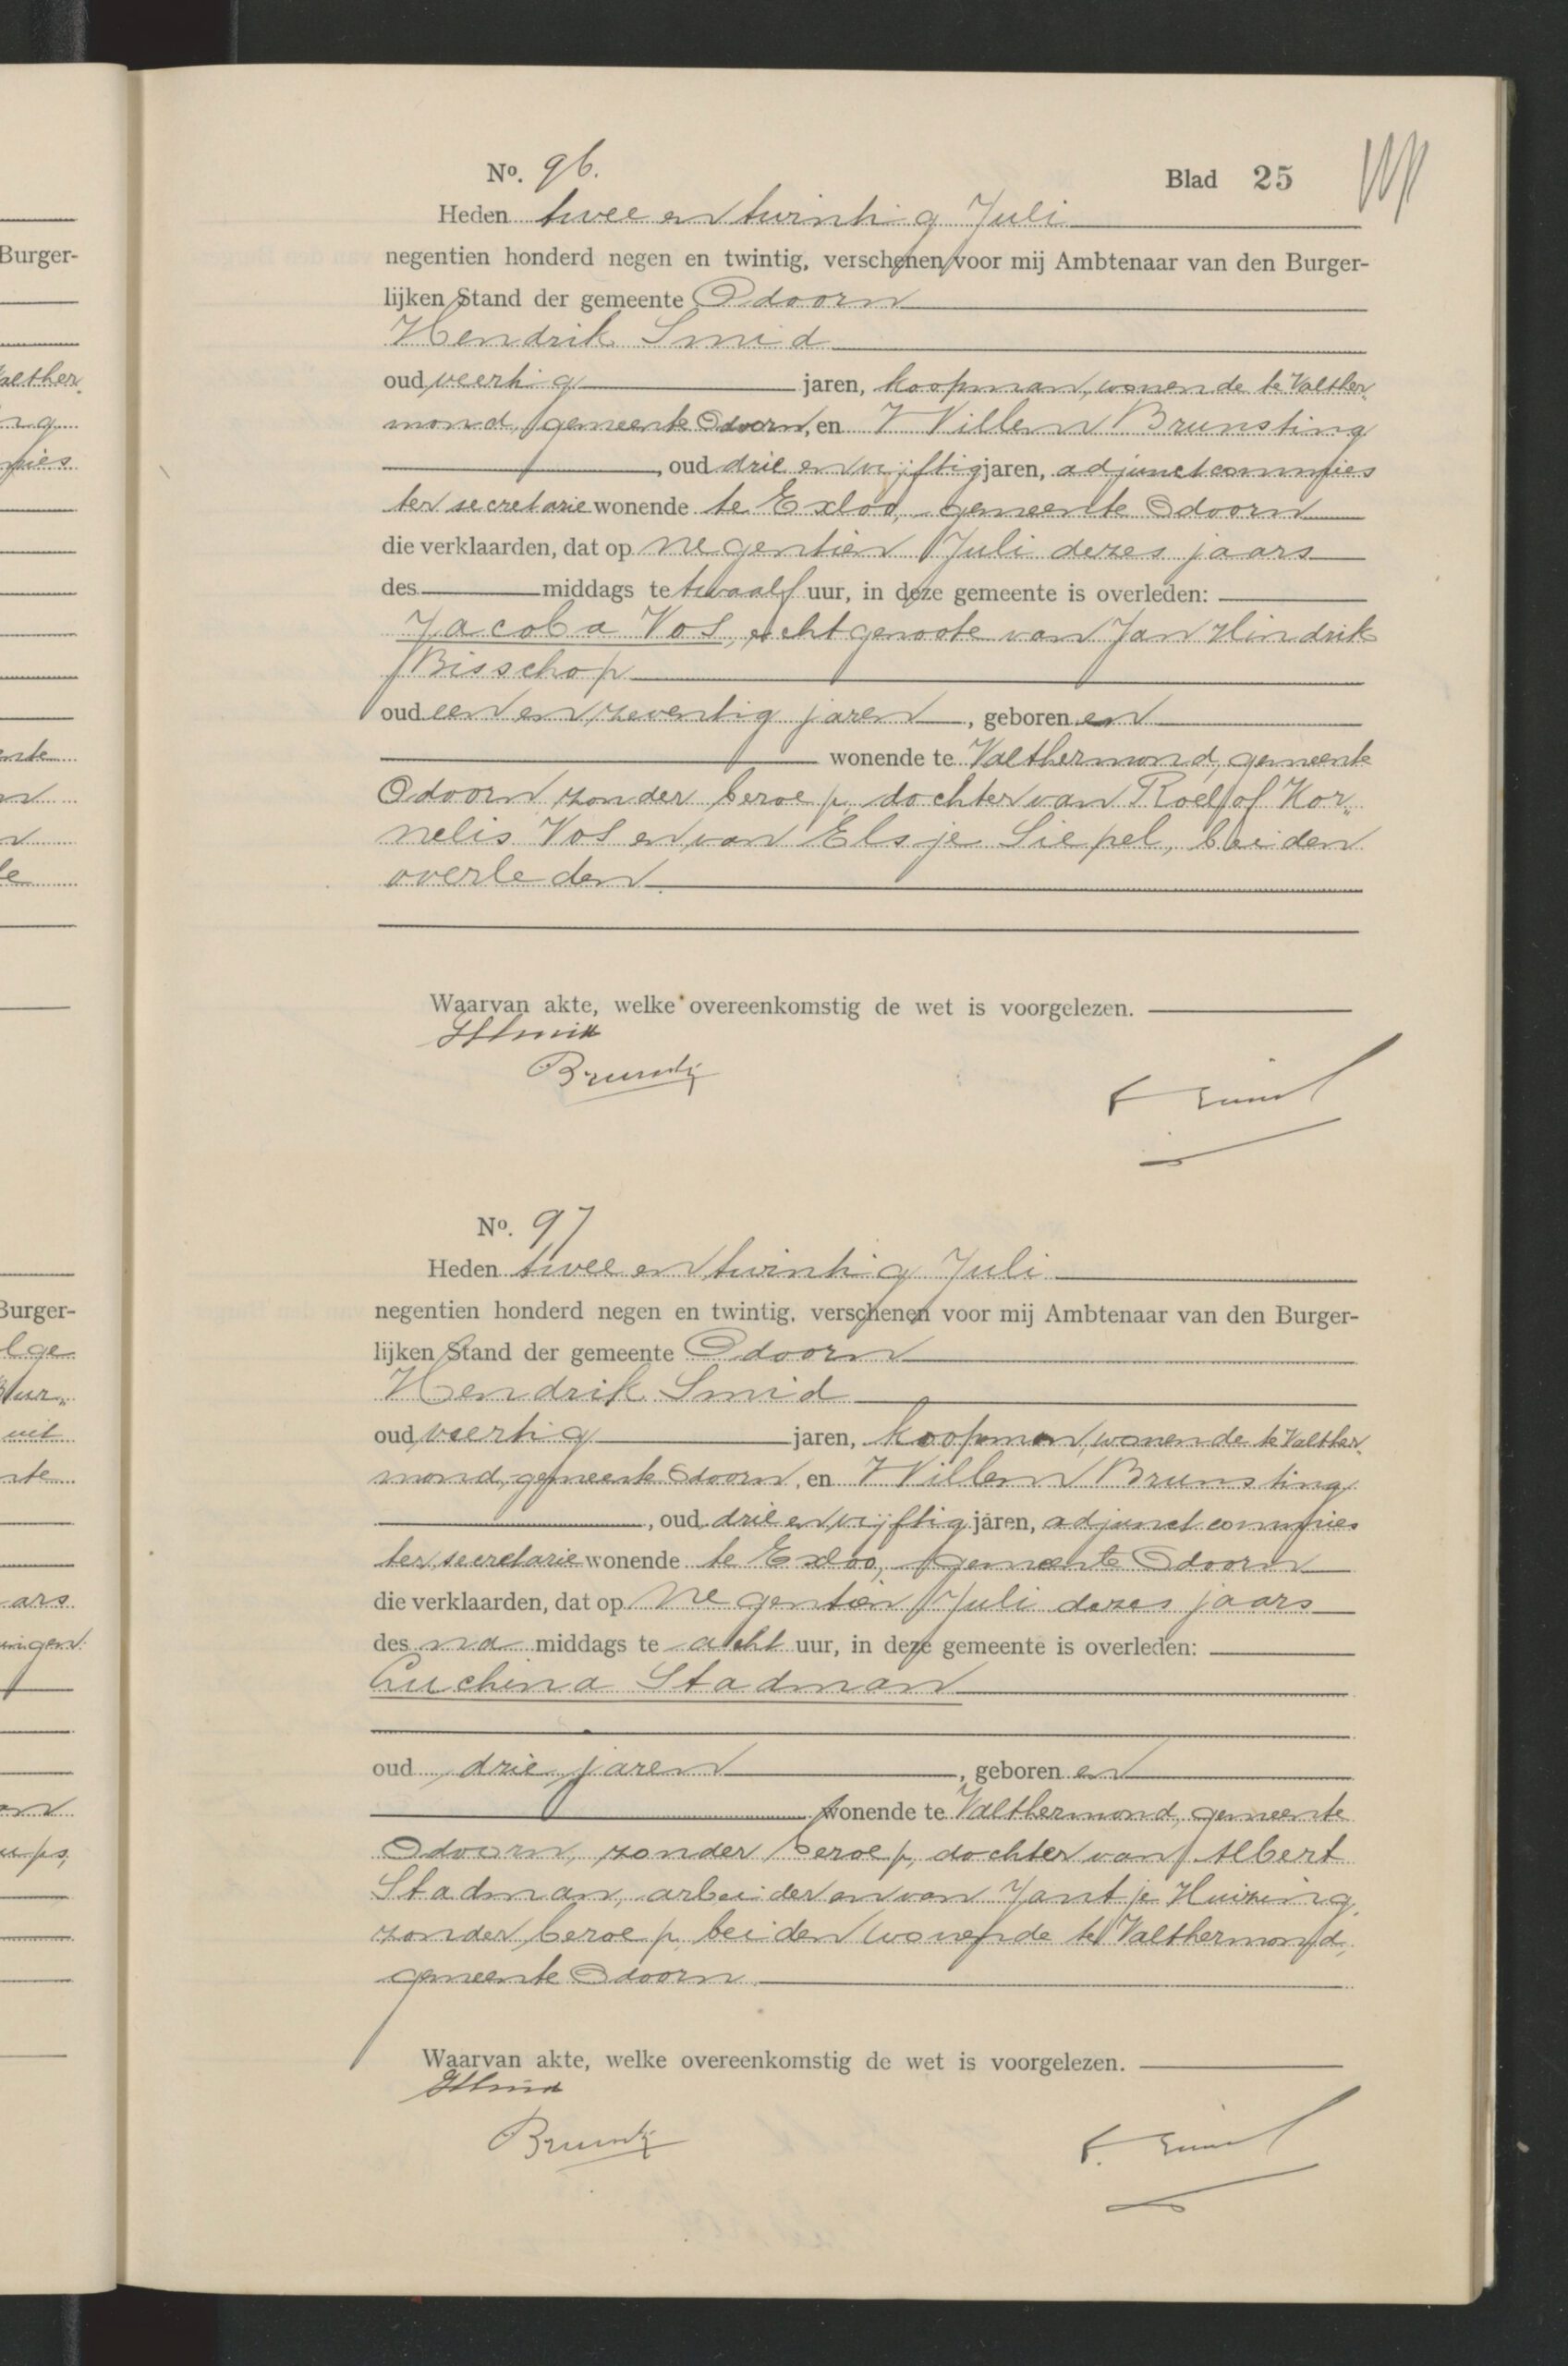 No. 96.
Blad 25
Heden twee en twintig Juli
negentien honderd negen en twintig, verschenen voor mij Ambtenaar van den Burger-
lijken Stand der gemeente Odoorn
Hendrik Smid
oud veertig jaren, koopman, wonende te Valther„
mond, gemeente Odoorn, en Willem Brunsting
, oud drie en vijftig jaren, adjunct commies
ter secretarie wonende te Exloo, gemeente Odoorn
die verklaarden, dat op negentien Juli dezes jaars
des middags te twaalf uur, in deze gemeente is overleden:
Jacoba Vos, echtgenoote van Jan Hindrik
Bisschop
oud een en zeventig jaren, geboren en
wonende te Valthermond, gemeente
Odoorn, zonder beroep, dochter van Roelof Kor„
nelis Vos en van Elsje Siepel, beiden
overleden
Waarvan akte, welke overeenkomstig de wet is voorgelezen.
HSmid
Brunsting
No. 97
Heden twee en twintig Juli
negentien honderd negen en twintig, verschenen voor mij Ambtenaar van den Burger-
lijken Stand der gemeente Odoorn
Hendrik Smid
oud veertig jaren, koopman, wonende te Valther„
mond, gemeente Odoorn, en Willem Brunsting
, oud drie en vijftig jaren, adjunct commies
ter secretarie wonende te Exloo, gemeente Odoorn
die verklaarden, dat op negentien Juli dezes jaars
des na middags te acht uur, in deze gemeente is overleden:
Luchina Stadman
oud drie jaren, geboren en
wonende te Valthermond, gemeente
Odoorn, zonder beroep, dochter van Albert
Stadman, arbeider en van Jantje Huizing,
zonder beroep, beiden wonende te Valthermond,
gemeente Odoorn
Waarvan akte, welke overeenkomstig de wet is voorgelezen.
HSmid
Brunsting